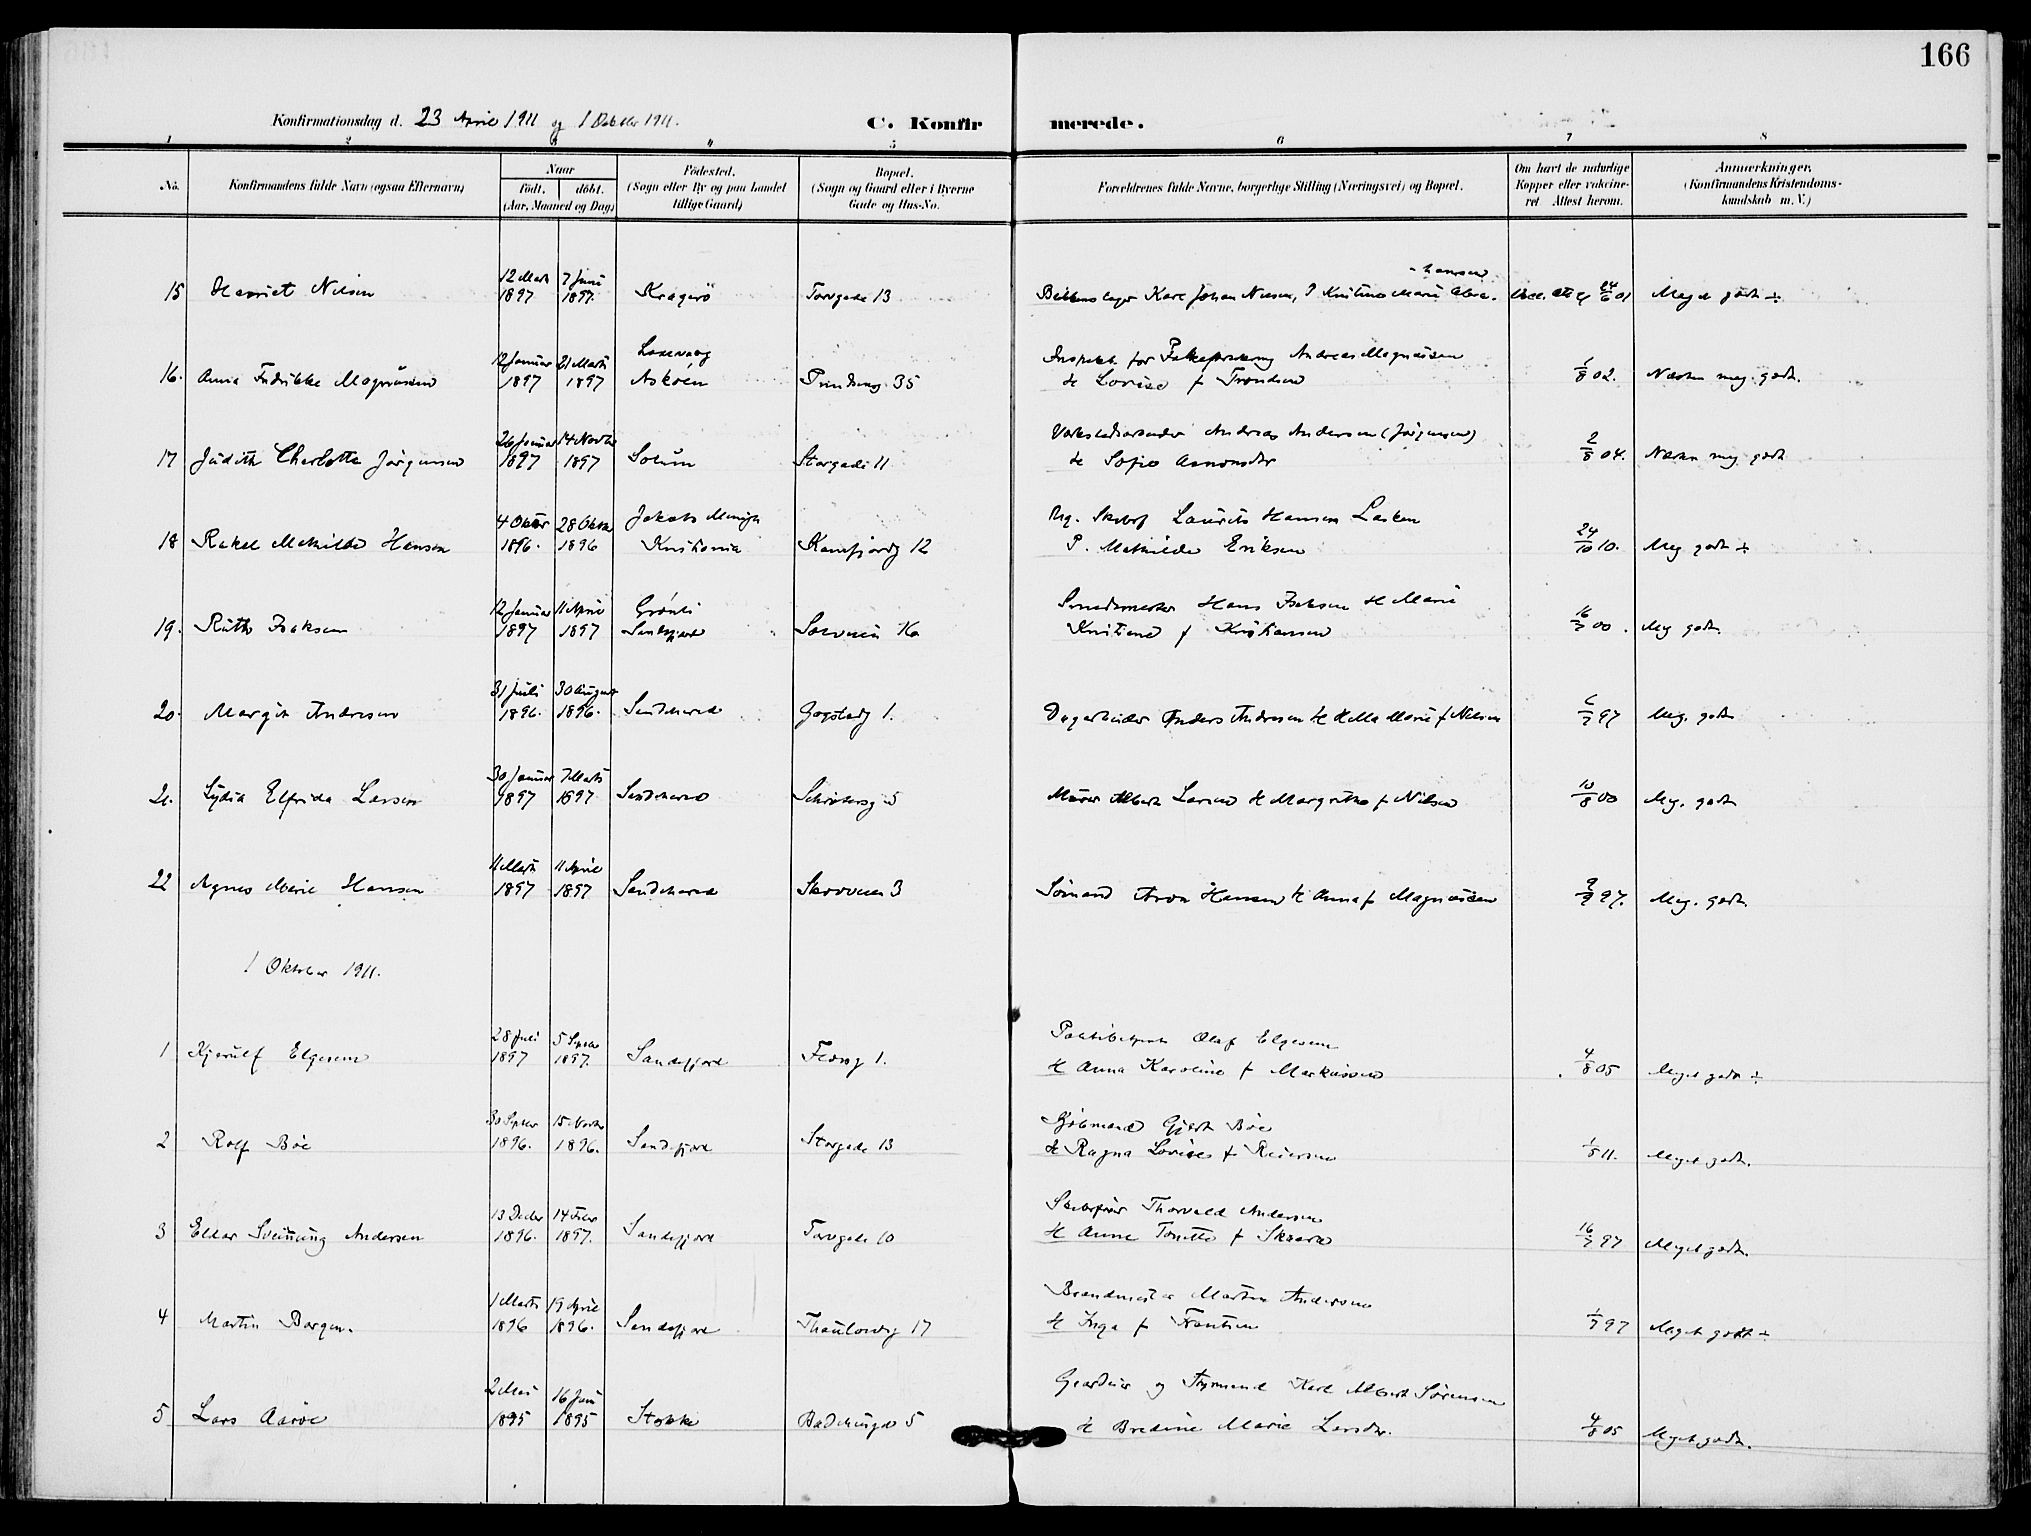 166
Konfirmationsdag d. 23 April 1911 og 1 Oktober 1911.
C. Konfirmerede.
1 2 3 4 5 6 7 8
No.
Konfirmandens fulde Navn (ogsaa Efternavn)
Naar
født. døbt.
(Aar, Maaned og Dag)
Fødested.
(Sogn eller By og paa Landet
tillige Gaard)
Bopæl.
(Sogn og Gaard eller i Byerne
Gade og Hus-No.
Forældrenes fulde Navne, borgerlige Stilling (Næringsvei) og Bopæl.
Om havt de naturlige
Kopper eller vakcine-
ret Attest herom.
Anmærkninger.
(Konfirmandens Kristendoms-
kundskab m. V.)
15 Harriet Nilsen 12 Marts 1897 7 Juni 1897. Kragerö Torvgade 13
Karl Johan Nilsen, Kristine Marie 24/6 01 Meget godt ÷
16. Anna Fredrikke Magnüssen 12 Januar 1897 21 Marts 1897 Laxevaag Askøen Prindseng 35
Andreas Magnüssen
H Lovise f Trondsen 1/8 02. Næsten meg. godt.
17 Judith Charlotte Jørgensen 26 Januar 1897 14 Novbr 1897 Solum Storgade 11
Andreas Andersen (Jørgensen)
H Sofie Aaronsdtr 2/8 04. Næsten meg godt
18 Rakel Mathilde Hansen 4 Oktbr 1896. 28 Oktbr 1896 Jakobs Menigh Kristiania Kamfjordg 12
Laurits Hansen
P. Mathilde Eriksen 24/10 10. Meg godt ÷
19. Ruth Isaksen 12 Januar 1897 11 April 1897 Grönli Sandefjord
Smedemester Hans Isaksen H Marie
Kristine f Kristiansen 16/7 00. Meg godt.
20. Margit Andresen 31 Juli 1896. 30 August 1896. Sandeherred Gogstadg 1.
Dagarbeider Anders Andresen H Helma Marie f Nilsen 6/7 97 Meg. godt
21. Lydia Elfrida Larsen 30 Januar 1897 7 Marts 1897 Sandeherred Schrøtersg 5
Murer Albert Larsen H Margrethe f Nilsen 10/8 00 Meg. godt
22 Agnes Marie Hansen 11 Marts 1897 11 April 1897 Sandeherred Skovveien 3
Sømand Aron Hansen H Anna f Magnüssen 9/9 97. Meg. godt.
1 Oktober 1911.
1 Kjerulf Elgesem 28 Juli 1897 5 Septbr 1897. Sandefjord 1.
Politibetjent Olaf Elgesem
H Anna Karoline f Markussen 4/8 05 Meget godt ÷
2 Rolf Böe 30 Septbr 1896. 15 Novbr 1896. Sandefjord Storgade 13
Kjöbmand Gjert Böe
H Ragna Lovise f Reiersen 1/8 11. Meget godt.
3 Eldar Sveinung Andersen 13 Decbr 1896. 14 Febr 1897. Sandefjord Torvgade 10
Skibsfører Thorvald Andersen
H Anne Tonette f Skaara 16/7 97 Meget godt.
4 Martin Borgen. 1 Marts 1896 19 April 1896. Sandefjord Thaulowsg 17
Brandmester Martin Andersen
H Inga f Frantsen 1/7 97 Meget godt ÷
5 Lars Aaröe 2 Mai 1895 16 Juni 1895 Stokke Badehusgd 5
Gaardeier og Styrmand Karl Albert Sørensen
H Bredine Marie Larsdtr. 4/8 05 Meget godt.